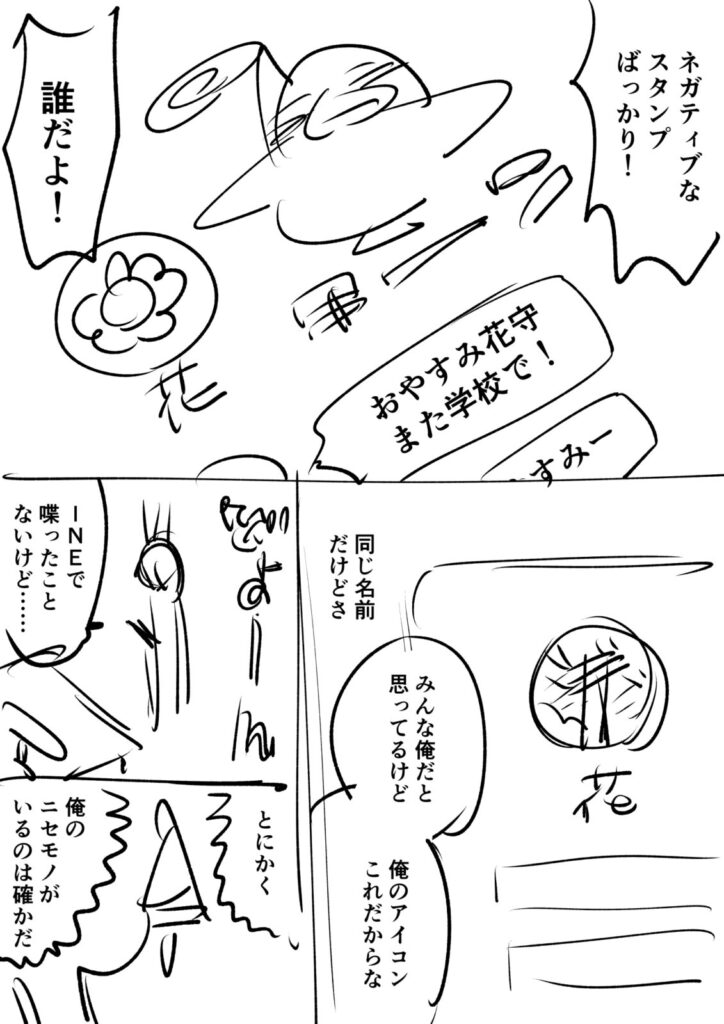 ネガティブな
スタンプ
ばっかり！
誰だよ！
花
おやすみ花守
また学校で！
すみー
同じ名前
だけどさ
花
みんな俺だと
思ってるけど
俺のアイコン
これだからな
ＩＮＥで
喋ったこと
ないけど……
とにかく
俺の
ニセモノが
いるのは確かだ